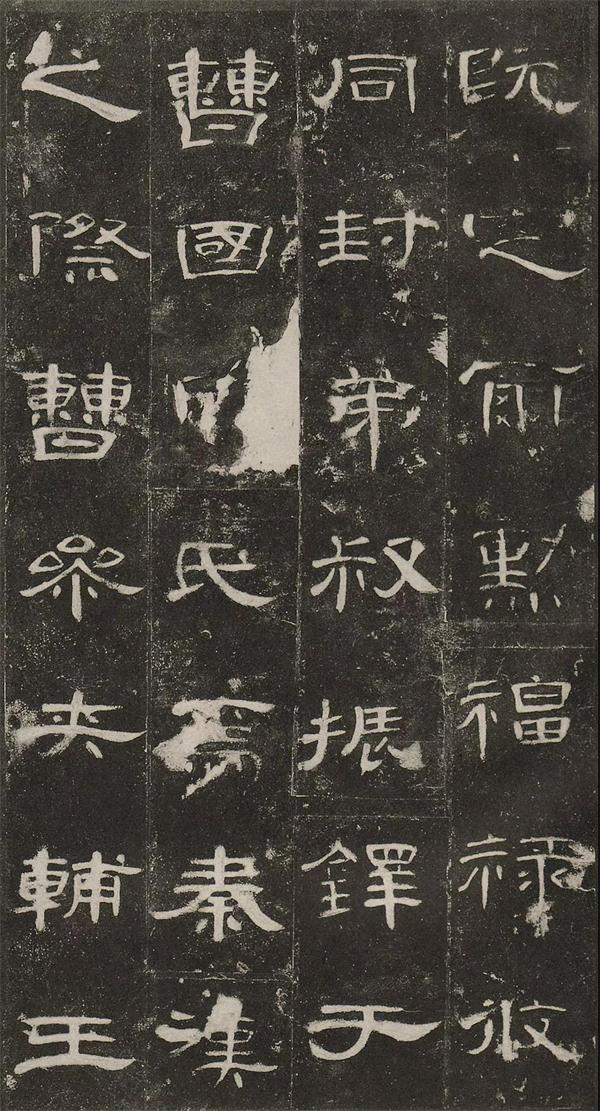 既定爾勳福祿攸
同封弟叔振鐸于
曹國因氏焉秦漢
之際曹參夾輔王